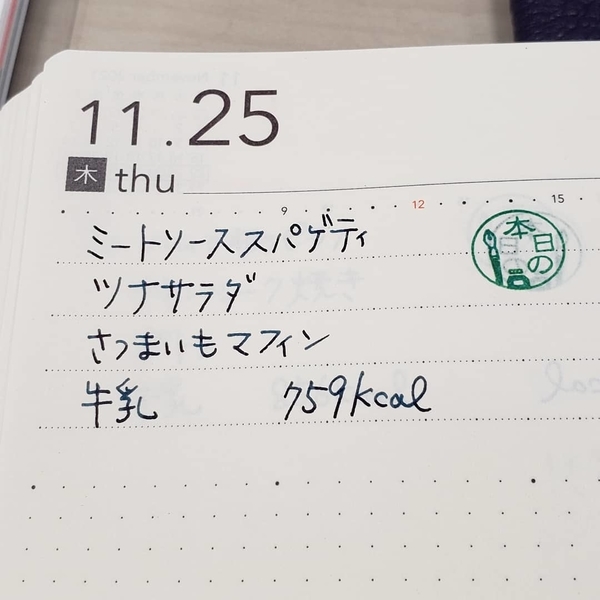 11.25
木 thu
9 12 15
ミートソーススパゲティ
本日の
ツナサラダ
さつまいもマフィン
牛乳 759kcal